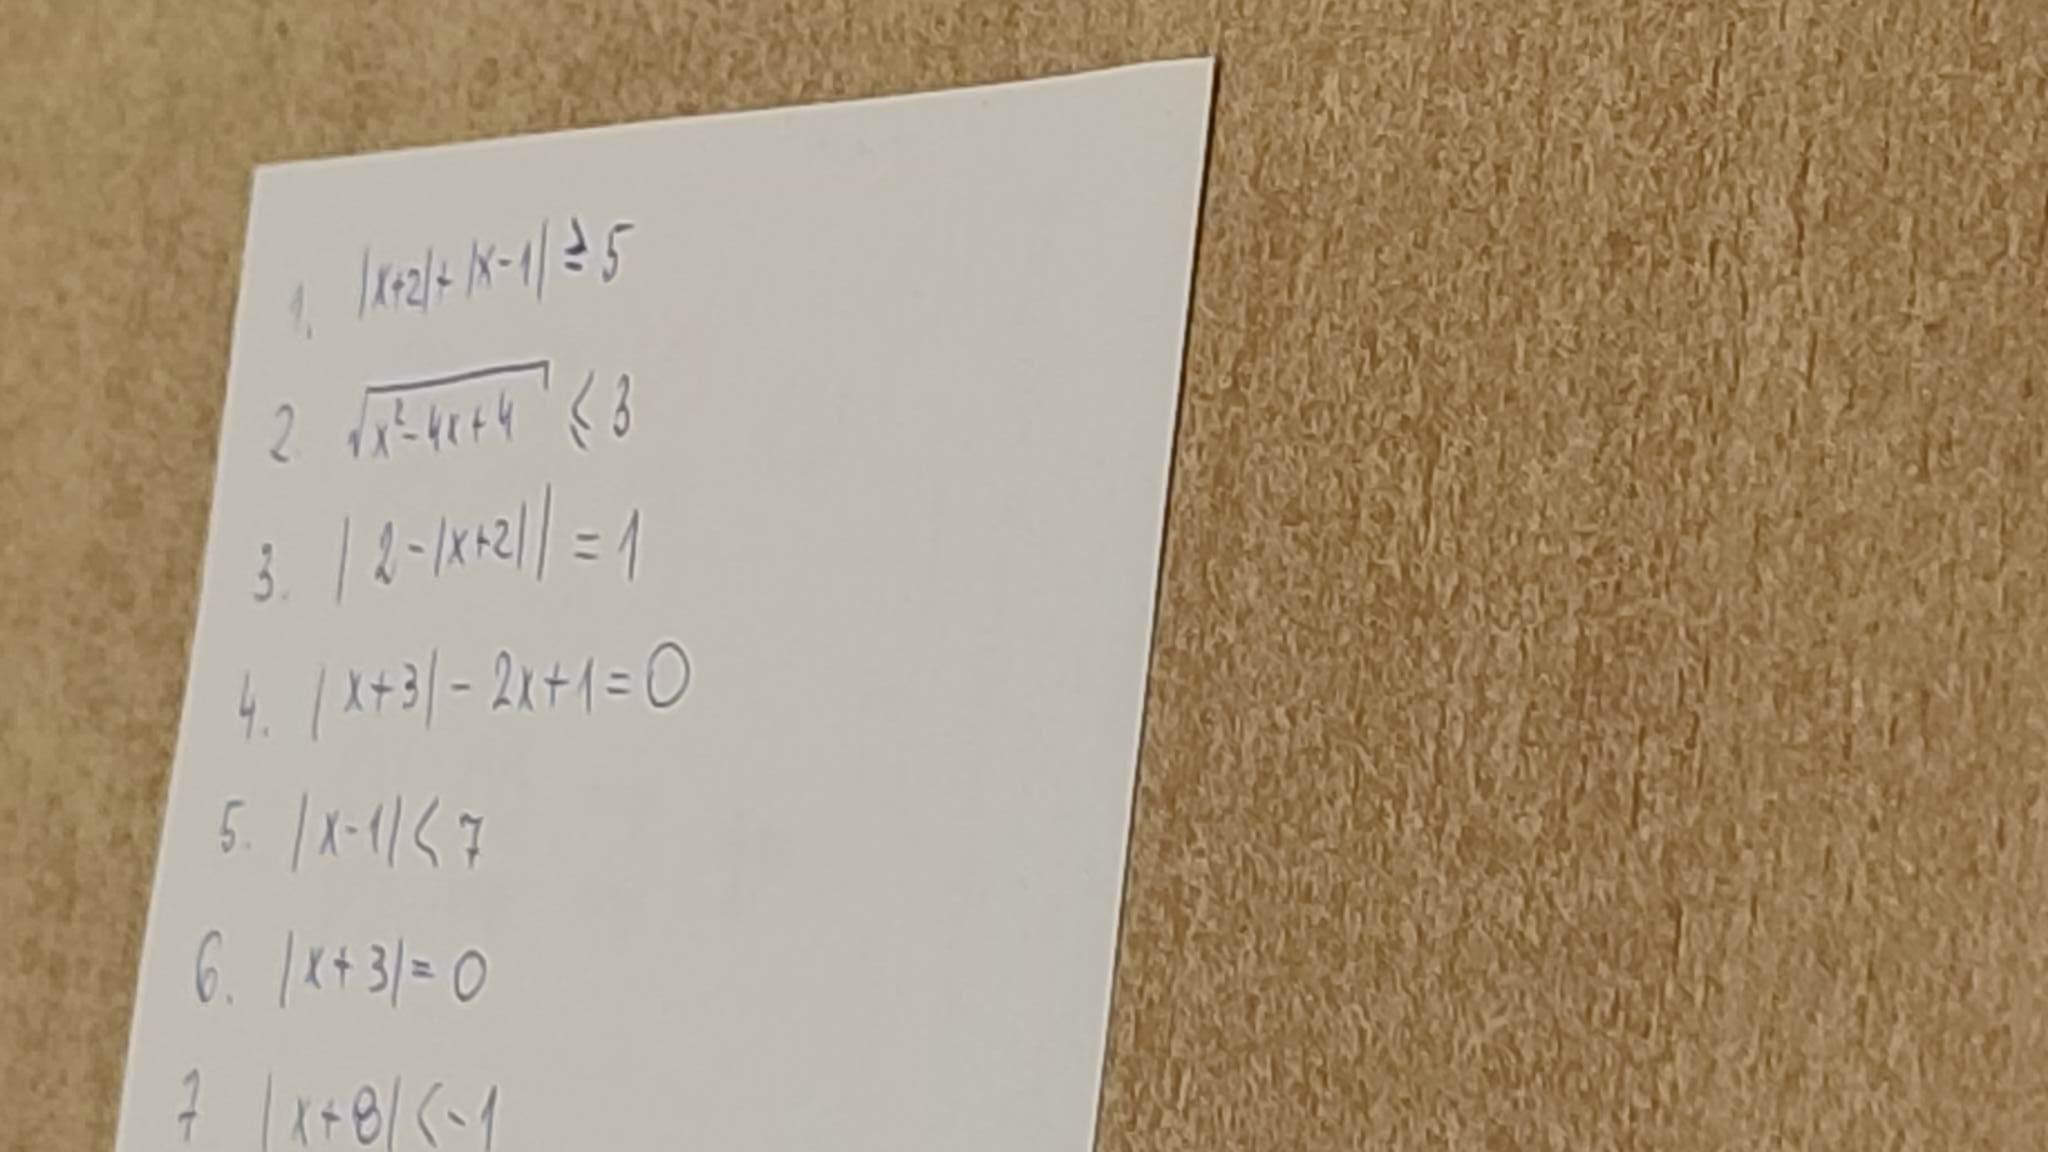 1. |x+2|+|x-1| ≥ 5
2. √x²-4x+4 ≤ 3
3. |2-|x+2|| = 1
4. |x+3|-2x+1=0
5. |x-1|<7
6. |x+3|=0
7 |x+8|<-1